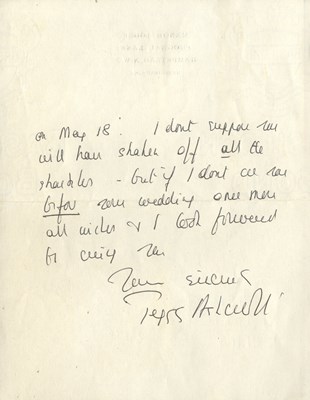 on May 18th. I dont suppose you
will have shaken off all the
shackles - but if I dont see you
before your wedding once more
all wishes & I look forward
to seeing you
Yours sincerely
Peggy Ashcroft